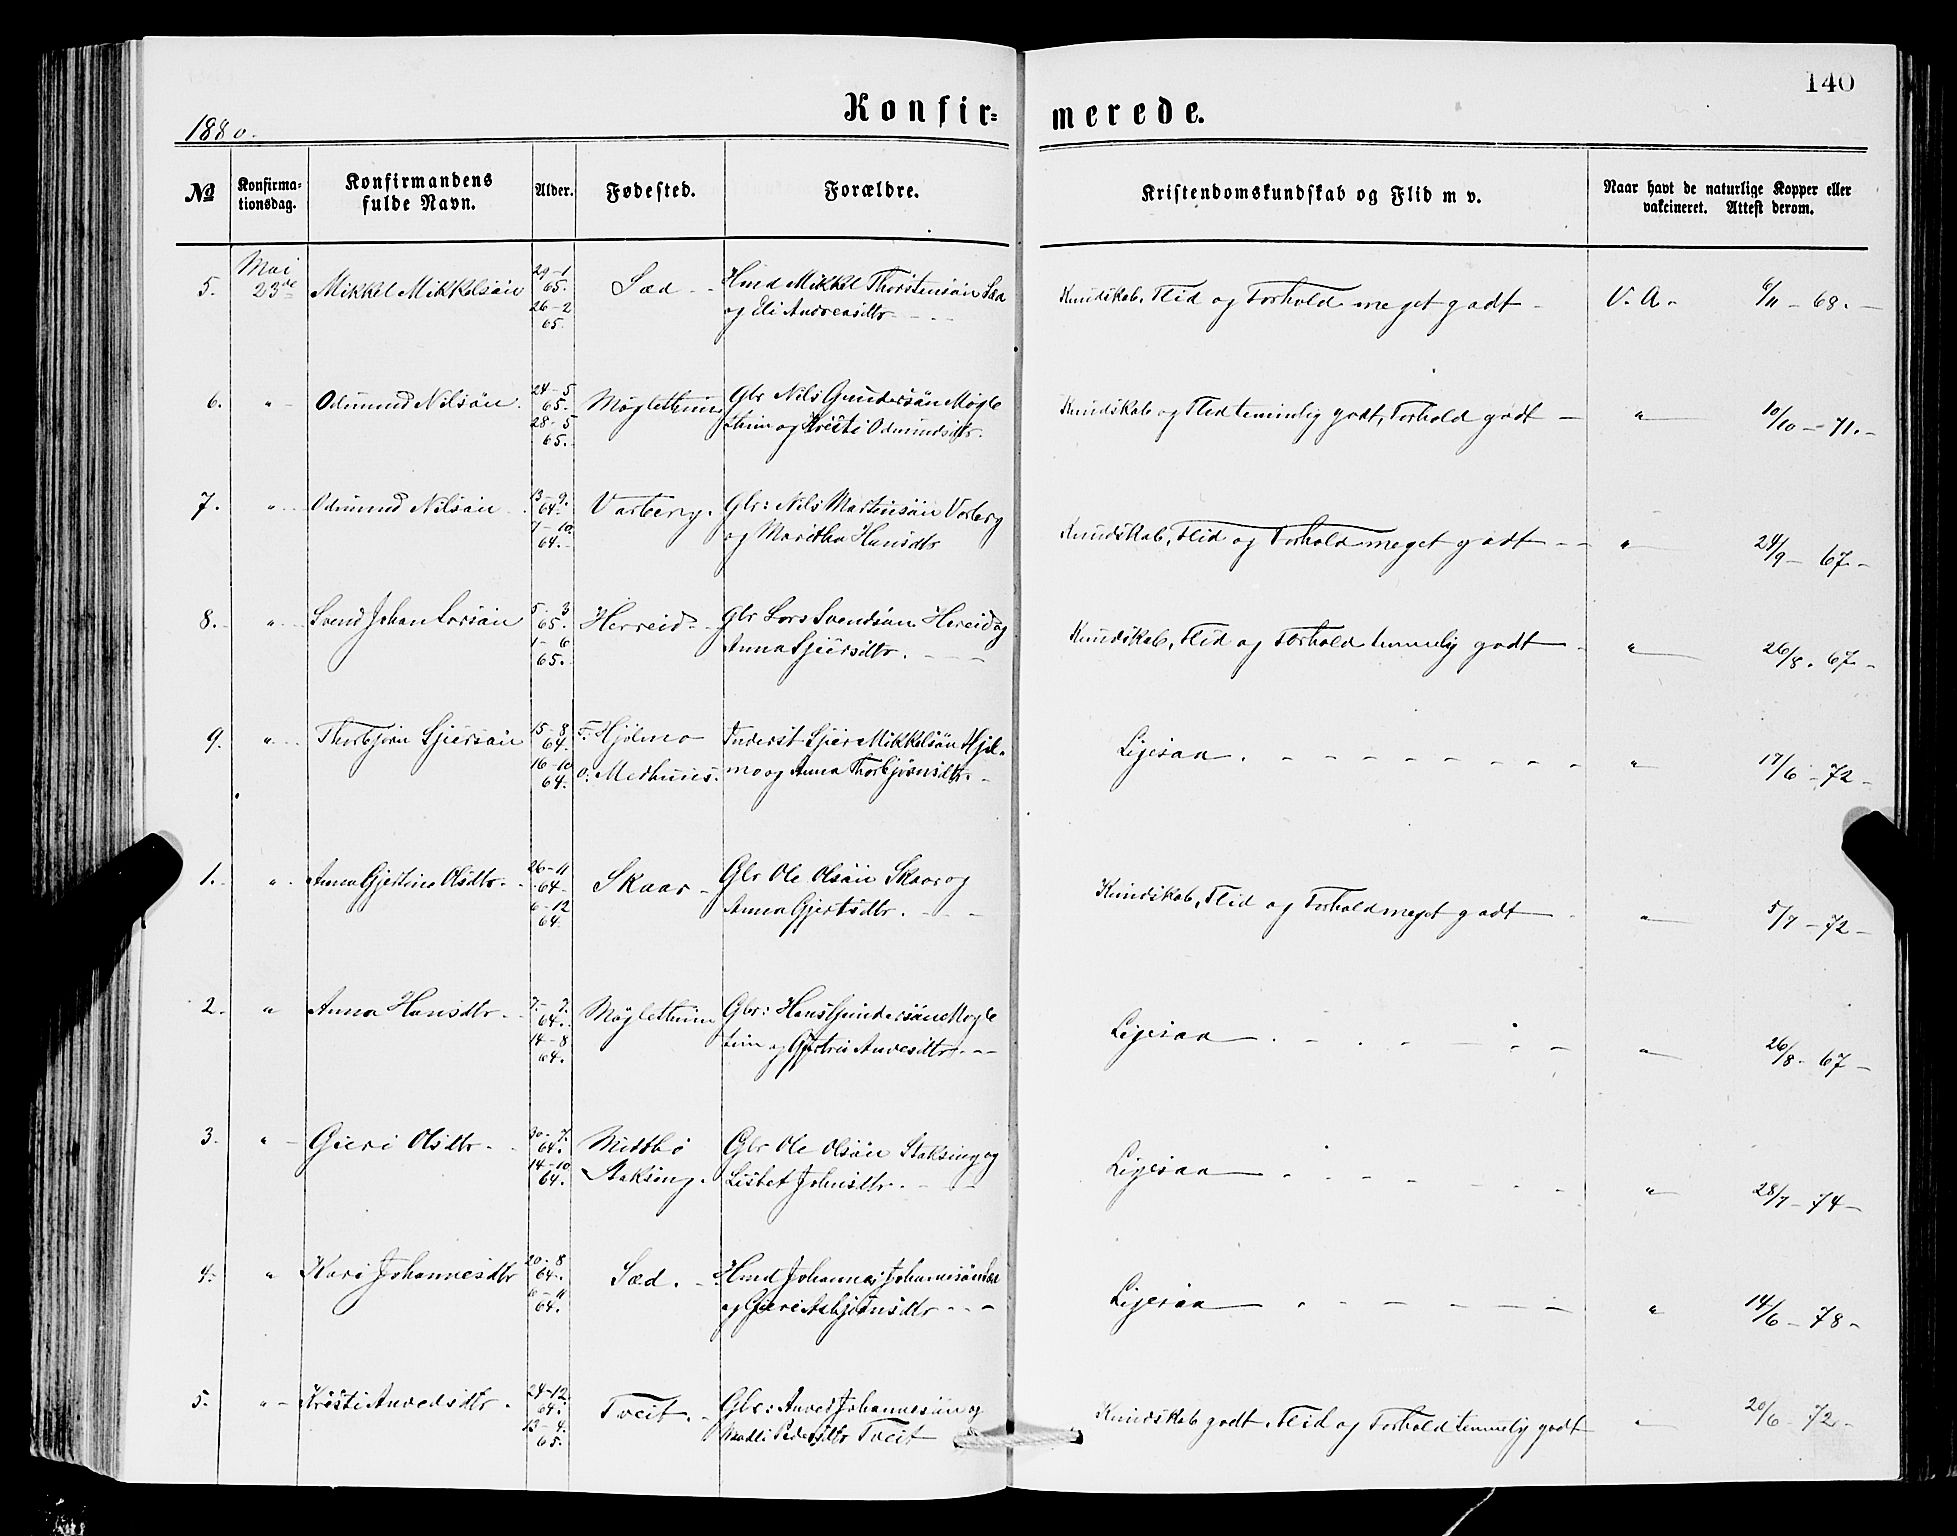 140
1880.
Konfir=
merede.
No
Konfirma=
tionsdag.
Konfirmandens
fulde Navn.
Alder.
Fødested.
Forældre.
Kristendomskundskab og Flid m v.
Naar havt de naturlige Kopper eller
vakcineret. Attest derom.
5. Mai 23de Mikkel Mikkelsøn 29-1 65. 26-2 65. Sæd Hmd Mikkel Thorstensøn Sæd
og Eli Andreasdtr
Kundskab, Flid og Forhold meget godt V. A. 6/11 - 68.
6. " Odmund Nilsøn 24-5 65. 28-5 65. Møglethun Gbr Nils Gundersøn Møgle
thun og Kristi Odmundsdtr.
Kundskab og Flid temmelig godt, Forhold godt " 10/10 - 71.
7. " Odmund Nilsøn 13-9. 64. 7-10. 64. Varberg. Gbr: Nils Martinsøn Varberg
og Maritha Hansdtr
Kundskab, Flid og Forhold meget godt " 24/9 - 67.
8. " Svend Johan Larsøn 5-3 65. 1-6 65. Herreid Gbr Lars Svendsøn Hereid og
Anna Sjursdtr.
Kundskab, Flid og Forhold temmelig godt " 26/8. 67.
9. " Thorbjørn Sjursøn 15-8 64. 16-10 64. F. Hjølmo
o. Medhuus. Inderst Sjur Mikkelsøn Hjøl-
mo og Anna Thorbjørnsdtr.
Ligesaa. " 17/6 - 72
1. " Anna Gjertine Olsdtr. 26-11 64. 6-12 64. Skaar Gbr Ole Olsøn Skaar og
Anna Gjertsdtr.
Kundskab, Flid og Forhold meget godt " 5/7 - 72
2. " Anna Hansdtr. 7-7. 64. 14-8 64. Møglethun Gbr: Hans Gundersøn Møgle
tun og Gjertrui Anvesdtr.
Ligesaa " 26/8 - 67
3. " Gjeri Olsdtr. 30-7. 64. 14-10 64. Midtbø
Staksing. Gbr Ole Olsøn Staksing og
Lisbet Johnsdtr.
Ligesaa " 28/7 - 74
4. " Kari Johannesdtr 20-8 64. 64. Sæd. Hmd Johannes Johannesøn Sæd
og Gjeri Asbjørnsdtr
Ligesaa " 14/6 - 78
5. " Kristi Anvedsdtr. 24-12. 64. 13-4. 65. Tveit. Gbr: Anved Johannesøn og
Pedersdtr Tveit
Kundskab godt. Flid og Forhold temmelig godt " 20/6 - 72